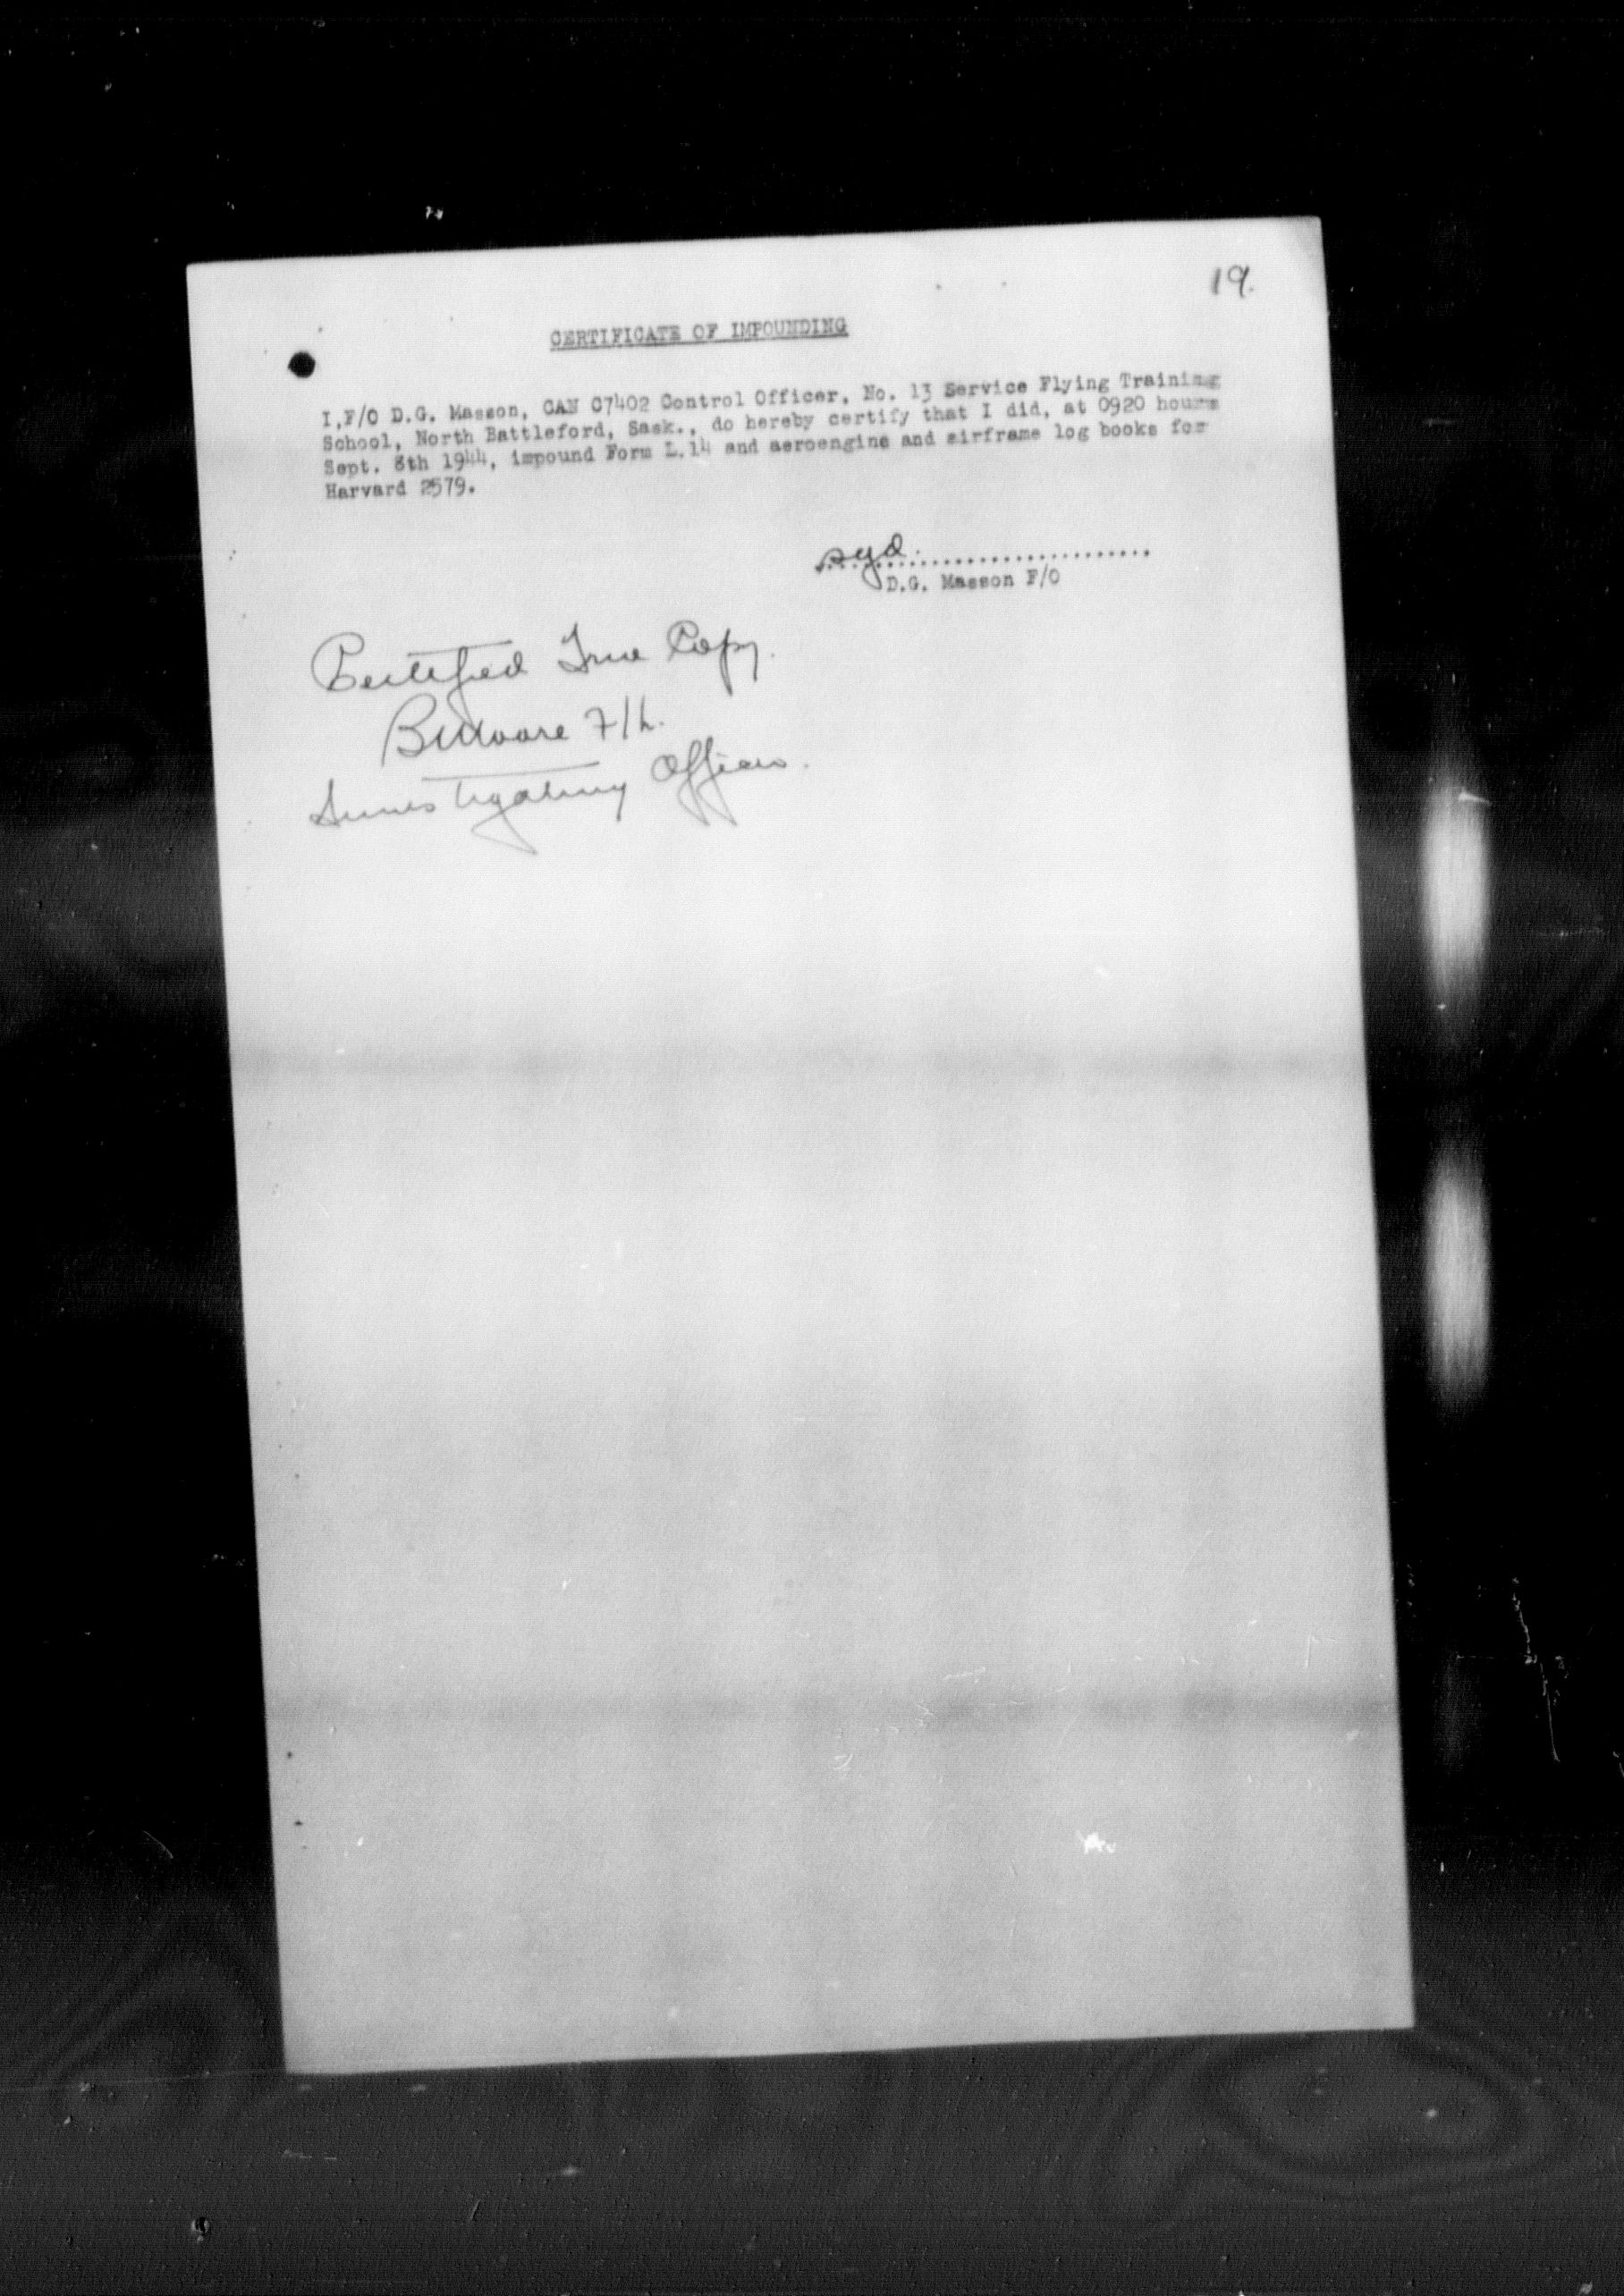 19.
CERTIFICATE OF IMPOUNDING
I, F/O D.G. Masson, CAN C7402 Control Officer, No. 13 Service Flying Training
School, North Battleford, Sask., do hereby certify that I did, at 0920 hours
Sept. 8th 1944, impound Form L.14 and aeroengine and airframe log books for
Harvard 2579.
sgd.
D.G. Masson F/O
Certified True Copy.
Moore F/L.
Investigating Officer.